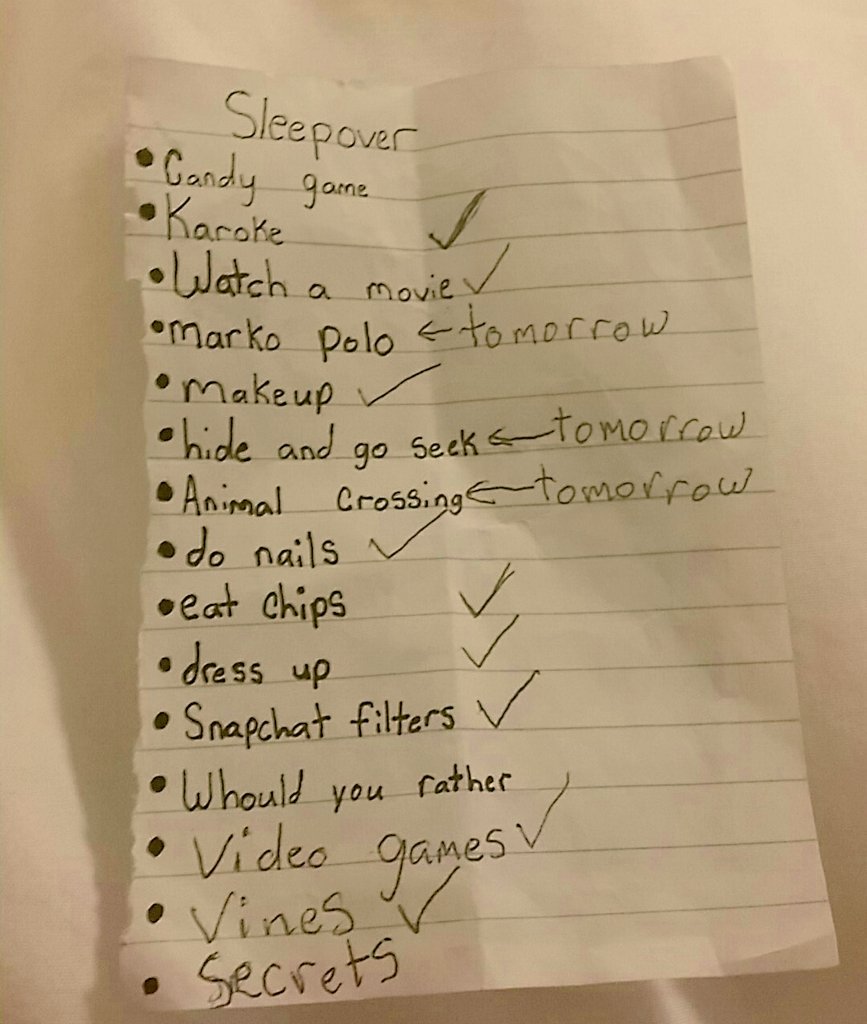 Sleepover
• Candy game
• Karoke ✓
• Watch a movie ✓
• Marko polo ← tomorrow
• Makeup ✓
• hide and go seek ← tomorrow
• Animal Crossing ← tomorrow
• do nails ✓
• eat chips ✓
• dress up ✓
• Snapchat filters ✓
• Whould you rather
• Video games ✓
• Vines ✓
• Secrets